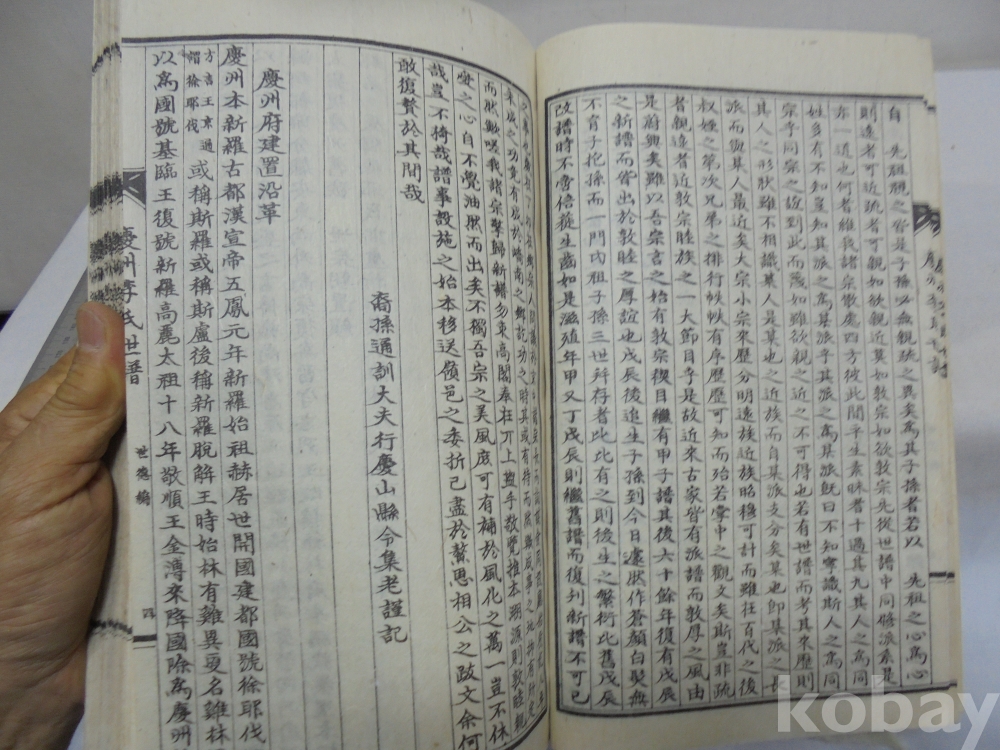 自 先祖視之皆是子孫以無親疏之異矣爲其子孫者若以 先祖之心爲心
則遠者可近疏者可親如欲親近莫如敦宗如欲敦宗先從世譜中同脩派系是
亦一道也何者雖我諸宗散處四方彼此間平生素昧者十過其九其人之爲同
姓多有不知豈知其派之爲某派乎其派之爲某派旣曰不知寧識斯人之爲同
宗乎同宗之誼到此而蔑如雖欲親之近之不可得也若有世譜而考其來歷則
其人之形狀雖不相識某人是某也之近族而自某派支分矣某也卽某派之
派而與某人最近矣大宗小宗來歷分明遠族近族昭穆可計而雖在百代之後
叔姪之第次兄弟之排行帙帙有序歷歷可知而殆若掌中之觀文矣斯豈非疏
者親遠者近敦宗睦族之一大節目乎是故近來古家皆有派譜而敦厚之風由
是蔚興矣雖以吾宗言之始有敦宗稧目繼有甲子譜其後六十餘年復有戊辰
之新譜而皆出於敦睦之厚誼也戊辰後進生子孫到今日遽然作蒼顔白髮無
不育子抱孫而一門內祖子孫三世幷存者比比有之則後生之繁衍比舊戊辰
改譜時不啻倍蓰生齒如是滋殖年甲又丁戊辰則繼舊譜而復刊新譜不可已
而然歟嗟我諸宗擎歸新譜勿束高閣奉在丌上盥手敬覽推本明源則敦睦親
愛之心自不覺油然而出矣不獨吾宗之美風庶可有補於風化之萬一豈不休
哉豈不猗哉譜事設施之始本移送嶺邑之委折已盡於鰲恩相公之跋文余何
敢復贅於其間哉
裔孫通訓大夫行慶山縣令集老謹記
慶州府建置沿革
慶州本新羅古都漢宣帝五鳳元年新羅始祖赫居世開國建都國號徐耶伐
方言王京通謂徐耶伐 或稱斯羅或稱斯盧後稱新羅脫解王時始林有雞異更名雞林
以爲國號基臨王復號新羅高麗太祖十八年敬順王金溥來降國除爲慶州
慶州李氏世譜
世德編